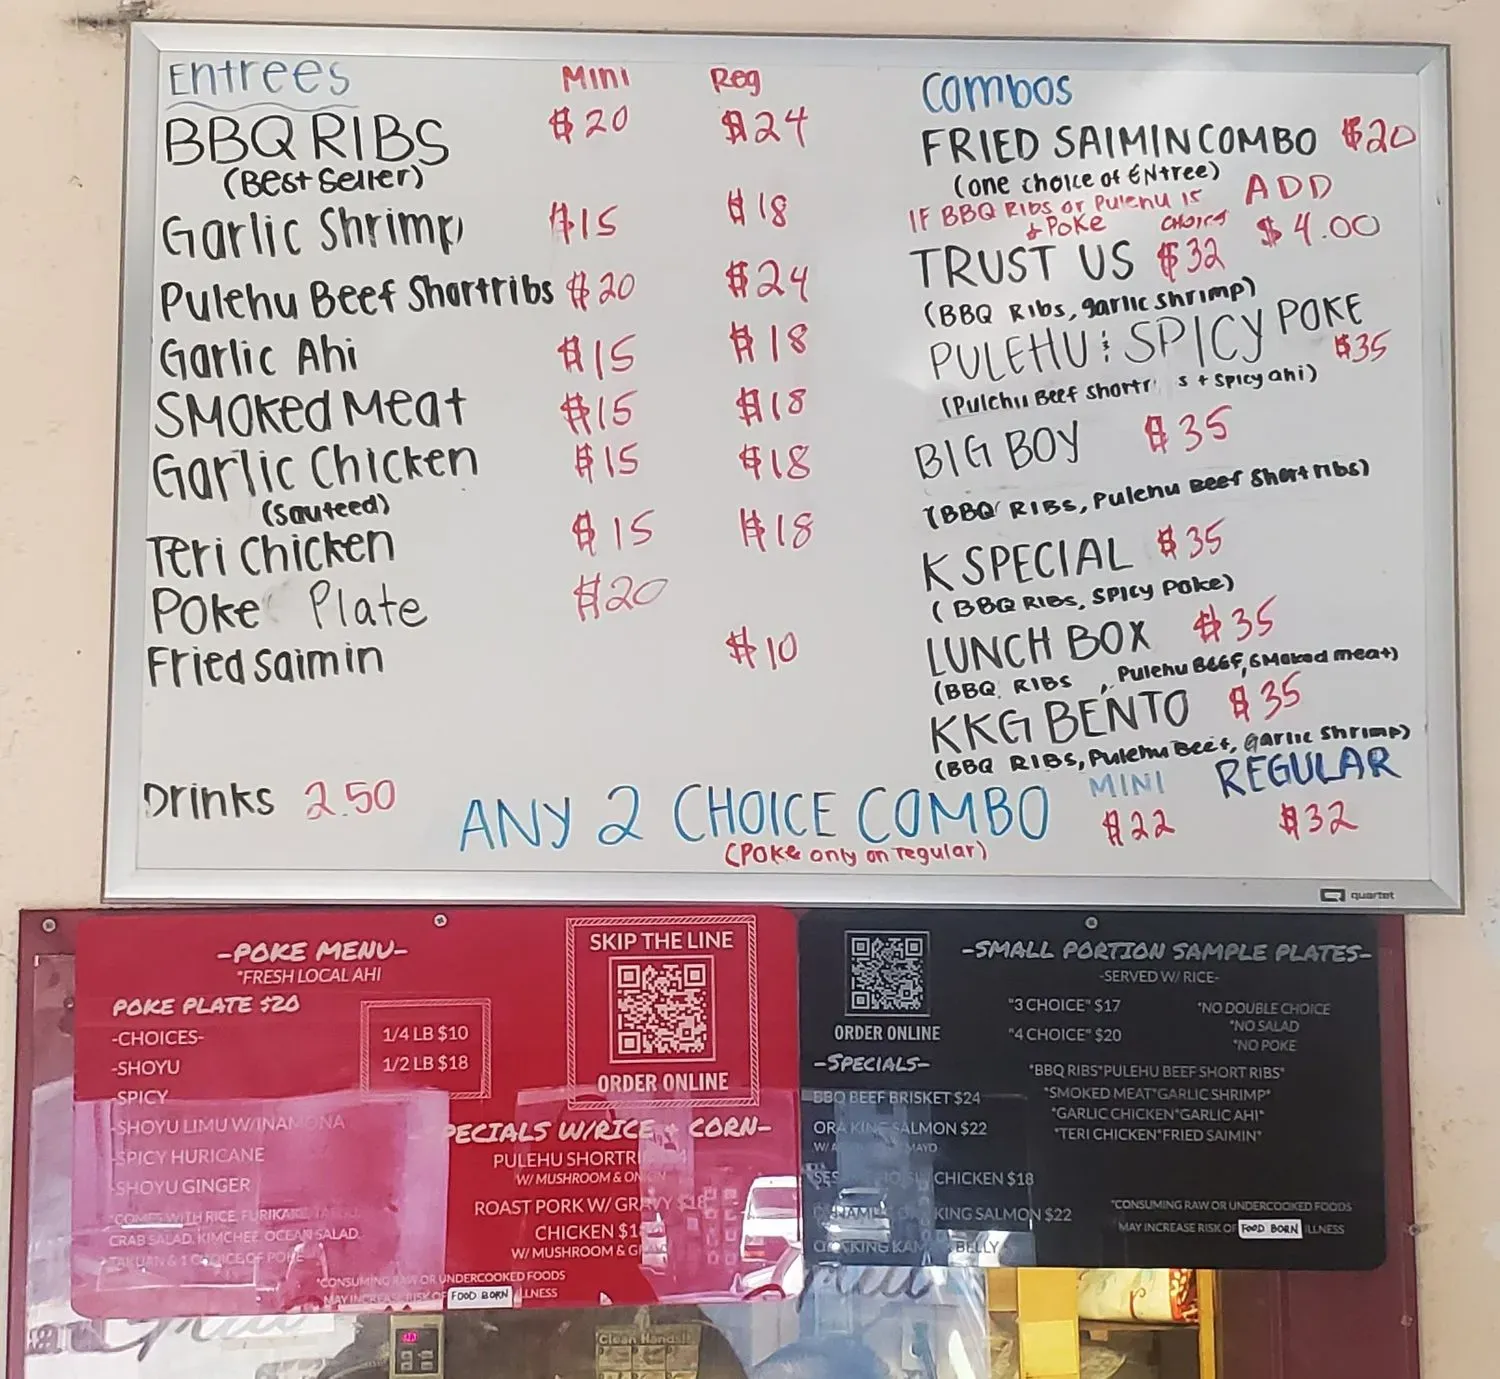 Entrees Mini Reg
BBQ RIBS $20 $24
(Best Seller)
Garlic Shrimp $15 $18
Pulehu Beef Shortribs $20 $24
Garlic Ahi $15 $18
SMOKED Meat $15 $18
Garlic Chicken $15 $18
(Sauteed)
Teri Chicken $15 $18
POKe Plate $20
Fried Saimin $10
Drinks 2.50
Combos
FRIED SAIMIN COMBO $20
(one choice of ENtree)
IF BBQ Ribs or Pulehu is ADD
& Poke choice $4.00
TRUST US $32
(BBQ Ribs, garlic shrimp)
PULEHU & SPICY POKE
$35
(Pulehu Beef Shortr s + Spicy ahi)
BIG BOY $35
(BBQ RIBS, Pulehu Beef Short ribs)
K SPECIAL $35
(BBQ RIBS, SPICY POKE)
LUNCH BOX $35
(BBQ RIBS , Pulehu BEEF, SMoked meat)
KKG BENTO $35
(BBQ RIBS, Pulehu Beef, Garlic Shrimp)
ANY 2 CHOICE COMBO MINI REGULAR
$22 $32
(POKe only on regular)
quartet
-POKE MENU-
*FRESH LOCAL AHI
POKE PLATE $20
-CHOICES-
-SHOYU
-SPICY
-SHOYU LIMU W/INAMONA
-SPICY HURICANE
-SHOYU GINGER
*COMES WITH RICE, FURIKAKE,
CRAB SALAD, KIMCHEE, OCEAN SALAD,
TAKUAN & 1 CHOICE OF POKE
1/4 LB $10
1/2 LB $18
SKIP THE LINE
ORDER ONLINE
PECIALS W/RICE + CORN-
PULEHU SHORTRI
W/ MUSHROOM & ON
ROAST PORK W/ GRAVY $18
CHICKEN $18
W/ MUSHROOM & G
*CONSUMING RAW OR UNDERCOOKED FOODS
MAY INCREASE RISK OF FOOD BORN ILLNESS
ORDER ONLINE
-SPECIALS-
BBQ BEEF BRISKET $24
ORA KING SALMON $22
CHICKEN $18
KING SALMON $22
BELLY
-SMALL PORTION SAMPLE PLATES-
-SERVED W/ RICE-
"3 CHOICE" $17
"4 CHOICE" $20
*NO DOUBLE CHOICE
*NO SALAD
*NO POKE
*BBQ RIBS*PULEHU BEEF SHORT RIBS*
*SMOKED MEAT*GARLIC SHRIMP*
*GARLIC CHICKEN*GARLIC AHI*
*TERI CHICKEN*FRIED SAIMIN*
*CONSUMING RAW OR UNDERCOOKED FOODS
MAY INCREASE RISK OF FOOD BORN ILLNESS
Clean Hands!!